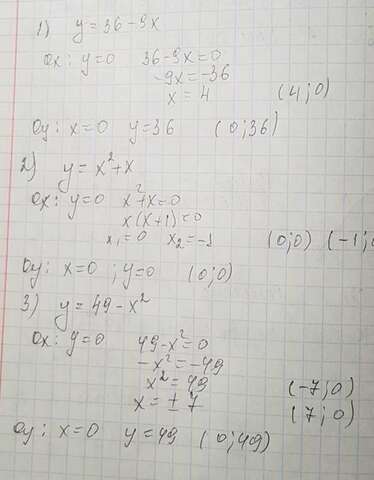 1) y = 36 - 9x
Ox: y=0 36-9x=0
-9x=-36
x = 4 (4; 0)
Oy: x=0 y=36 (0; 36)
2) y = x²+x
Ox: y=0 x²+x=0
x(x+1)=0
x₁=0 x₂=-1 (0; 0) (-1; 0
Oy: x=0 ; y=0 (0; 0)
3) y = 49 - x²
Ox: y=0 49-x²=0
-x²=-49
x²=49 (-7; 0)
x = ± 7 (7; 0)
Oy: x=0 y=49 (0; 49)